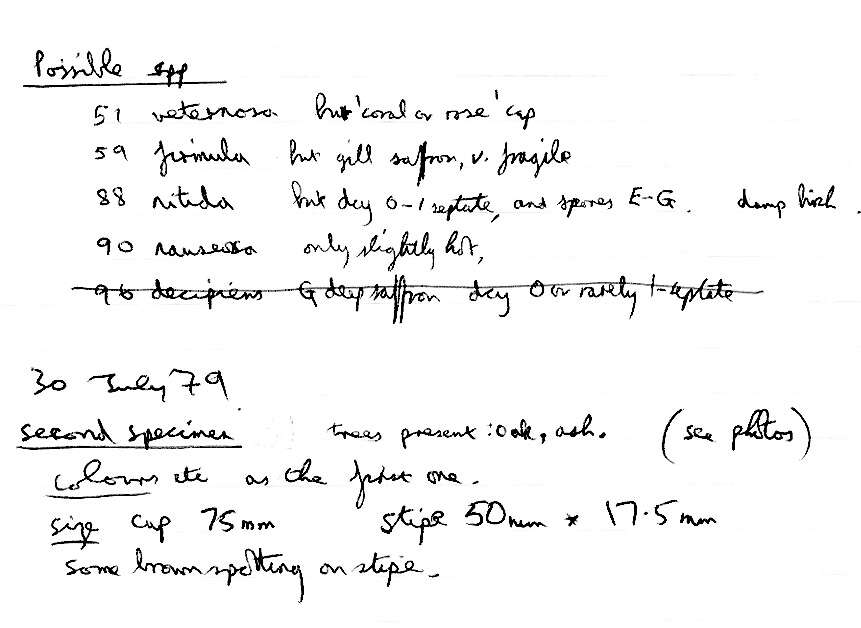 Possible spp
51 veternosa but 'coral or rose' cap
59 firmula but gill saffron, v. fragile
88 nitida but dcy 0-1 septate, and spores E-G. damp birch.
90 nauseosa only slightly hot,
96 decipiens G deep saffron dcy 0 or rarely 1-septate
30 July 79
second specimen trees present: oak, ash. (see photos)
colours etc as the first one.
size cap 75mm stipe 50mm × 17.5mm
Some brown spotting on stipe.